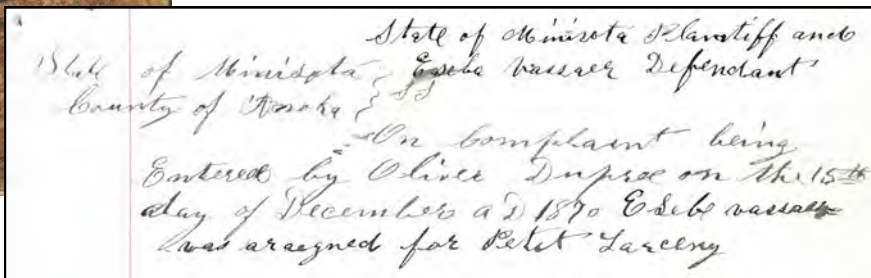 State of Minisota Plantiff and
Eseba Vassaer Defendant
State of Minisota } SS
County of Anoka
On Complaint being
Entered by Oliver Dupree on the 15th
day of December AD 1870 Esebe vassaer
was araegned for Petit Larceny